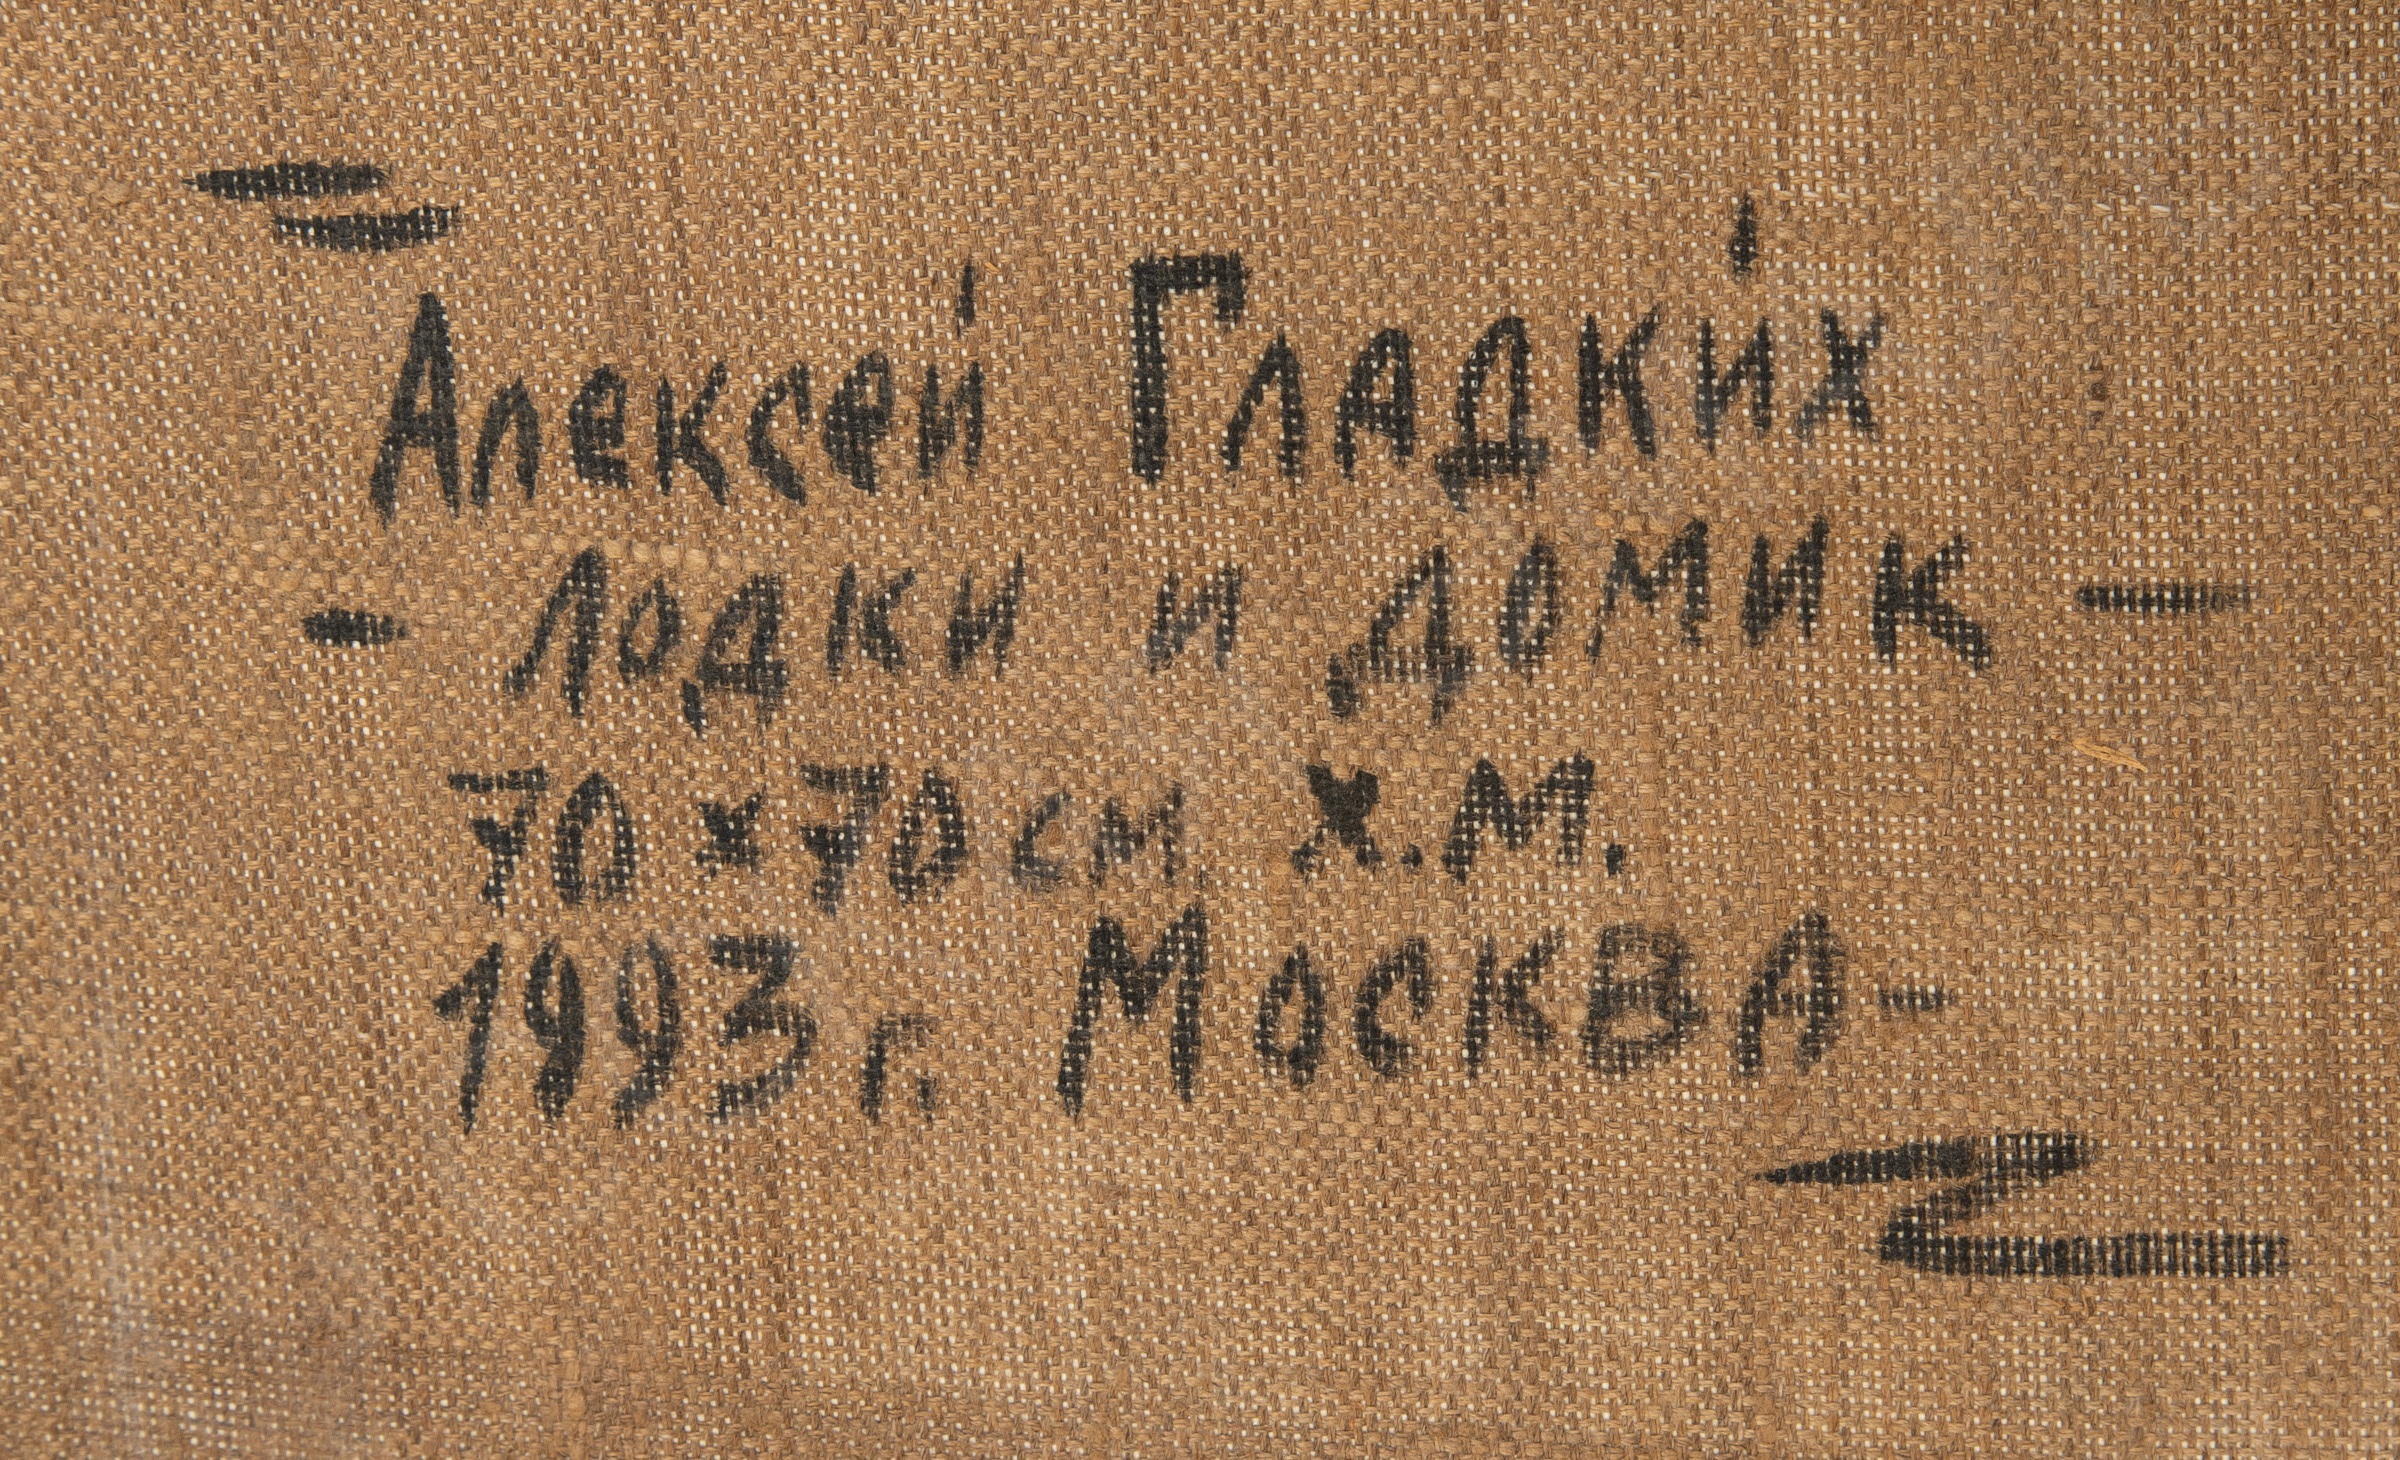 Алексей Гладки́х
- Лодки и домик -
70×70 см х.м.
1993 г. Москва-